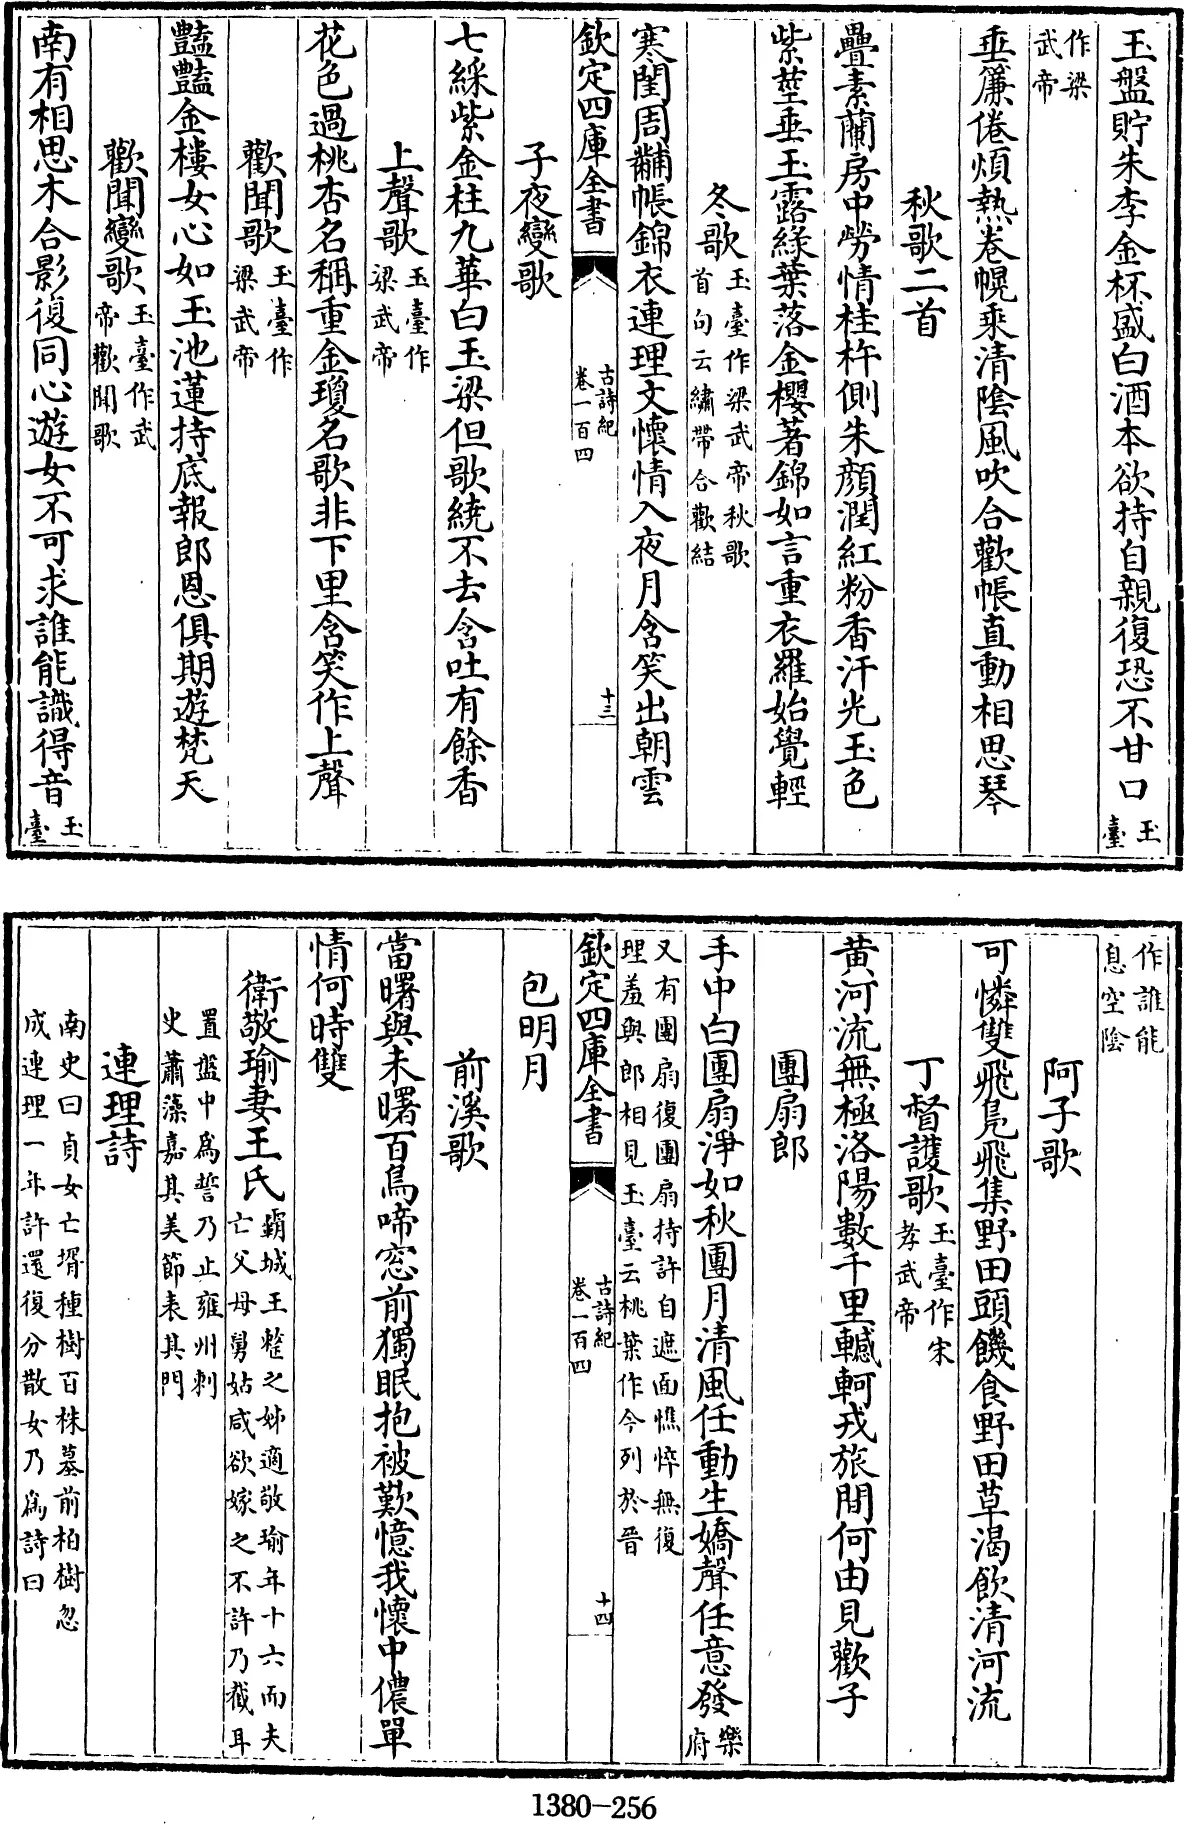 玉盤貯朱李金杯盛白酒本欲持自親復恐不甘口玉臺
作梁武帝
垂簾倦煩熱卷幌乘清陰風吹合歡帳直動相思琴
秋歌二首
疊素蘭房中勞情桂杵側朱顔潤紅粉香汗光玉色
紫莖垂玉露緑葉落金櫻著錦如言重衣羅始覺輕
冬歌玉臺作梁武帝秋歌首句云繡帶合歡結
寒閨周黼帳錦衣連理文懷情入夜月含笑出朝雲
欽定四庫全書
古詩紀
卷一百四
十三
子夜變歌
七綵紫金柱九華白玉梁但歌繞不去含吐有餘香
上聲歌玉臺作梁武帝
花色過桃杏名稱重金瓊名歌非下里含笑作上聲
歡聞歌玉臺作梁武帝
豔豔金樓女心如玉池蓮持底報郎恩俱期遊梵天
歡聞變歌玉臺作武帝歡聞歌
南有相思木合影復同心遊女不可求誰能識得音玉臺
作誰能息空陰
阿子歌
可憐雙飛鳧飛集野田頭饑食野田草渴飲清河流
丁督護歌玉臺作宋孝武帝
黄河流無極洛陽數千里轗軻戎旅間何由見歡子
團扇郎
手中白團扇淨如秋團月清風任動生嬌聲任意發樂府
又有團扇復團扇持許自遮面憔悴無復理羞與郎相見玉臺云桃葉作今列於晉
欽定四庫全書
古詩紀
卷一百四
十四
包明月
前溪歌
當曙與未曙百鳥啼窓前獨眠抱被歎憶我懷中儂單
情何時雙
衛敬瑜妻王氏霸城王整之姊適敬瑜年十六而夫亡父母舅姑咸欲嫁之不許乃截耳
置盤中爲誓乃止雍州刺史蕭藻嘉其美節表其門
連理詩
南史曰貞女亡壻種樹百株墓前柏樹忽成連理一年許還復分散女乃爲詩曰
1380-256